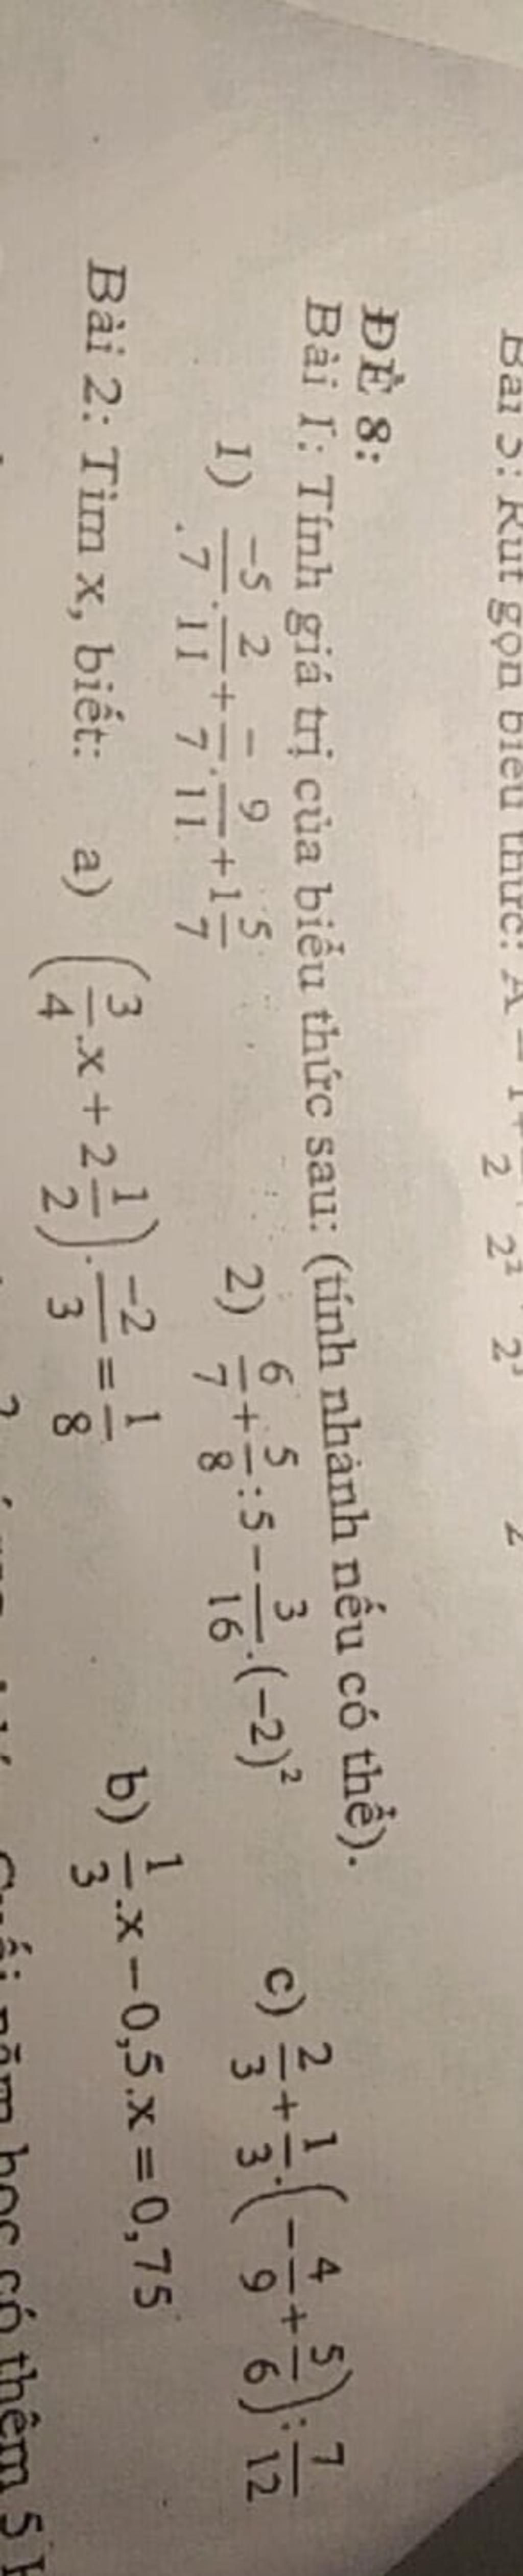 Bài 5: Rút gọn biểu thức: A = 1 + 2 2² 2³ 2
ĐỀ 8:
Bài 1: Tính giá trị của biểu thức sau: (tính nhanh nếu có thể).
1) -5/7 . 2/11 + -/7 . 9/11 + 1 5/7 2) 6/7 + 5/8 : 5 - 3/16 . (-2)² c) 2/3 + 1/3 . (- 4/9 + 5/6) : 7/12
Bài 2: Tìm x, biết: a) (3/4 . x + 2 1/2) . -2/3 = 1/8 b) 1/3 . x - 0,5.x = 0,75
học có thêm 5